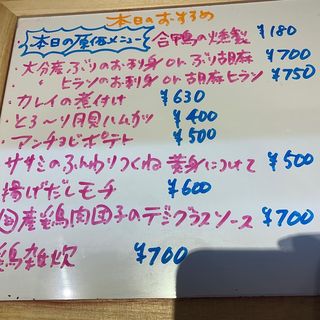 本日のおすすめ
本日の原価メニュー 合鴨の燻製 ¥180
・大分産ぶりのお刺身 or ぶり胡麻 ¥700
・ヒラメのお刺身 or 胡麻ヒラメ ¥750
・カレイの煮付け ¥630
・とろ～り貝ハムカツ ¥400
・アンチョビポテト ¥500
ササミのふんわりつくね 黄身につけて ¥500
揚げだしモチ ¥600
国産鶏肉団子のデミグラスソース ¥700
鶏雑炊 ¥700